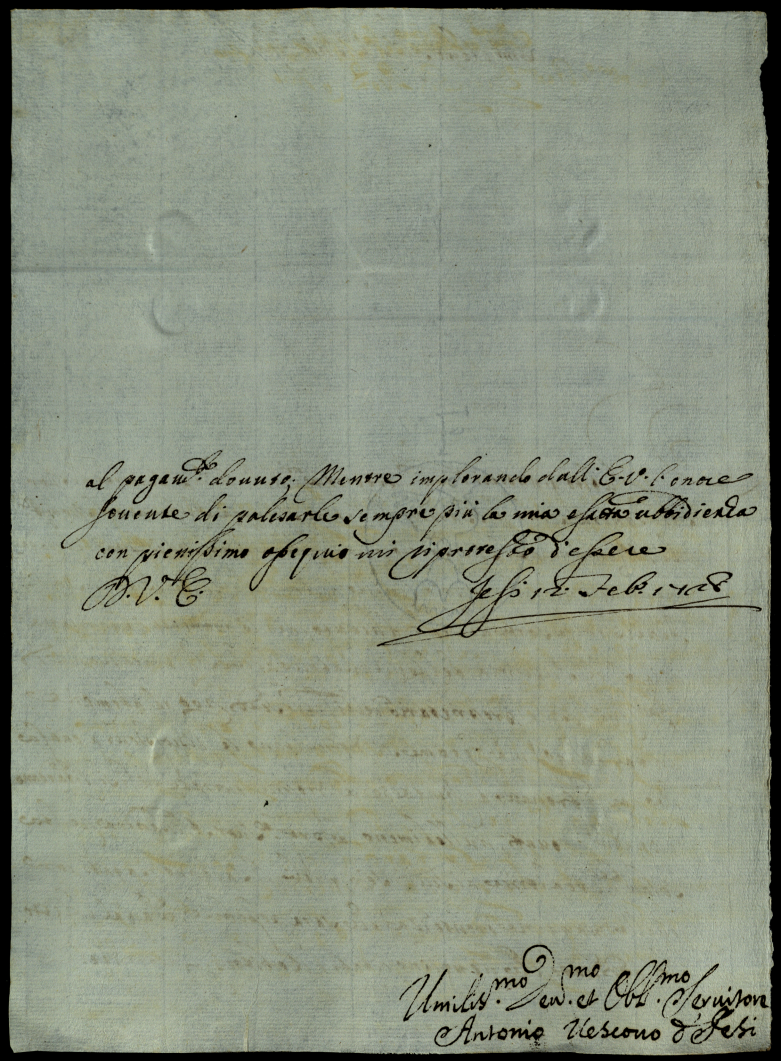 al pagam.to douuto; Mentre implorando dall'E. V. l'onore
souente di palesarle sempre più la mia esatta ubbidienza
con pienissimo ossequio mi riprotesto d'essere
D. V.ra E. Jesi 12. Feb.o
Umiliss.mo Deu.mo et Obl.mo Seruitore
Antonio Uescouo d'Jesi